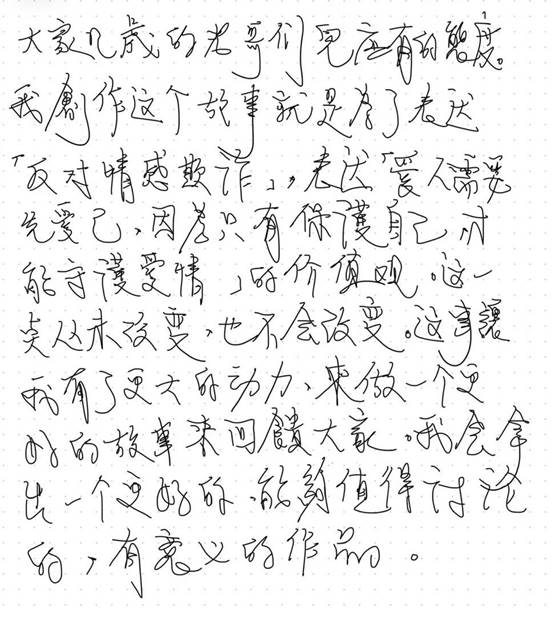 大家几歲的老哥们更应有的態度。
我創作这个故事就是為了表达
「反对情感欺诈」,表达「爱人需要
先愛己、因為只有保護自己,才
能守護愛情」的价值观。这一
点从未改变,也不会改变。这事讓
我有了更大的动力、來做一个更
好的故事来回饋大家。我会拿
出一个更好的、能夠值得讨论
的,有意义的作品。